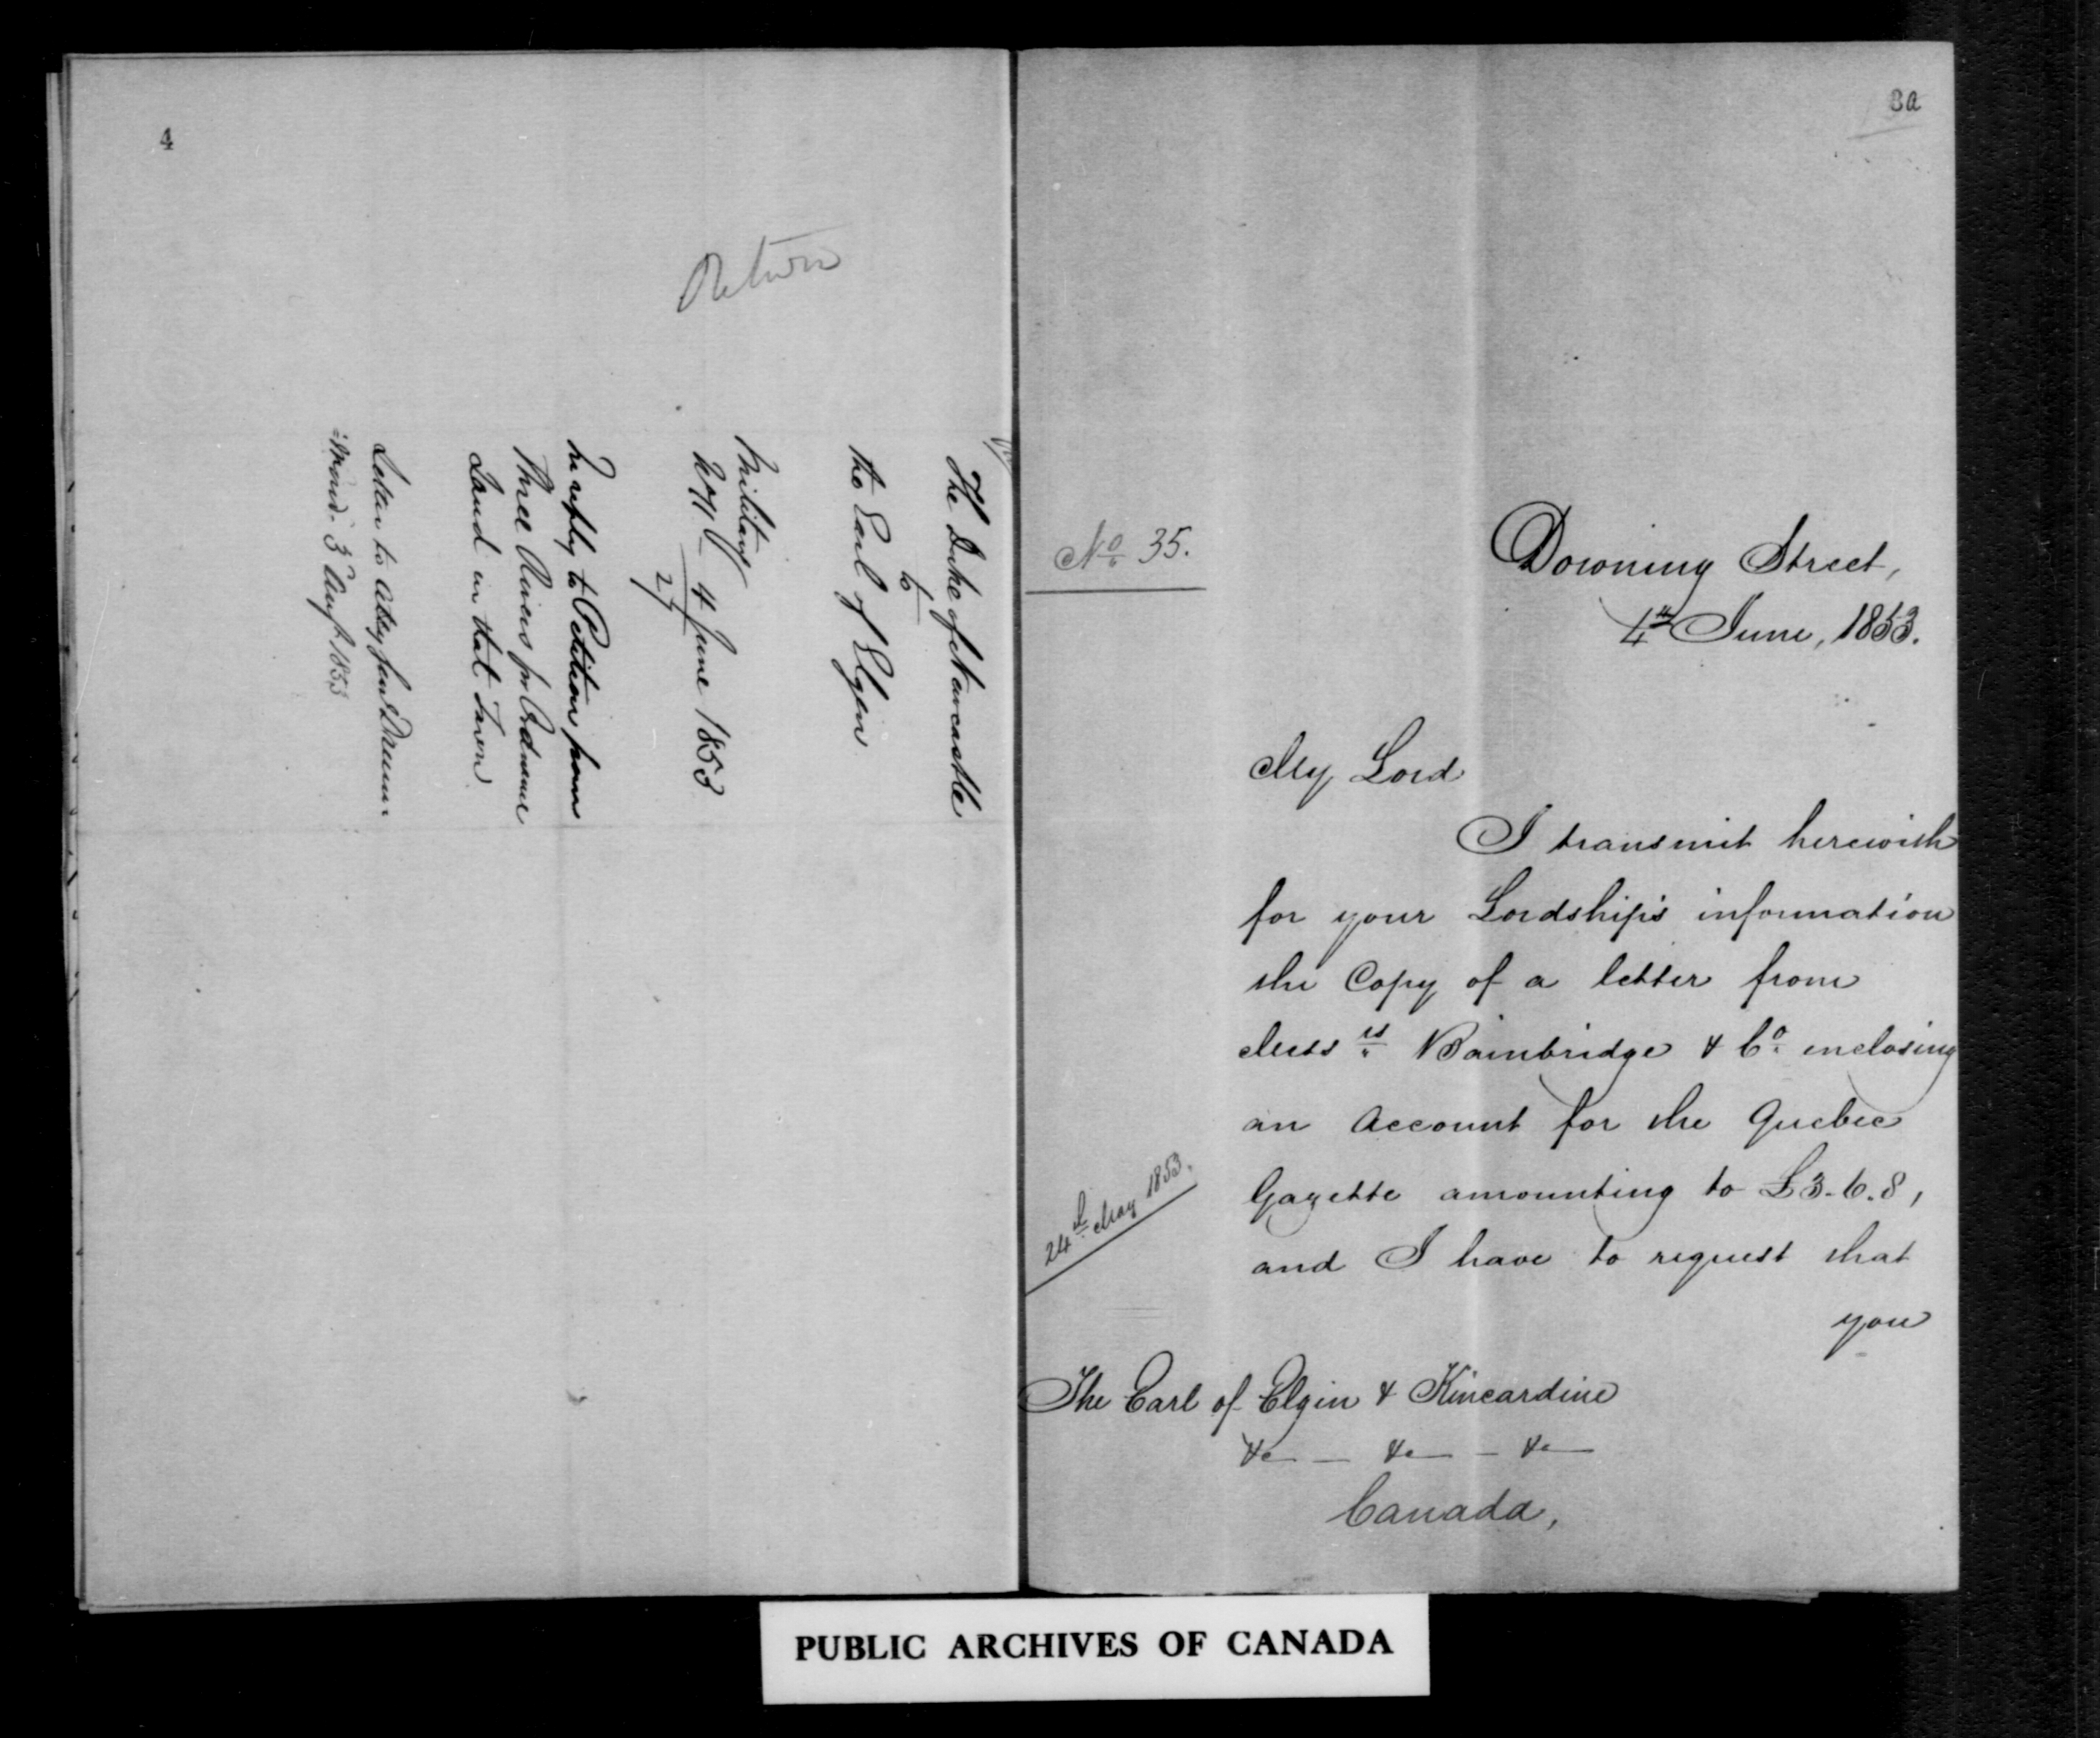 4
Return
The Duke of Newcastle
to
the Earl of Elgin
Military
4 June 1853
27
In reply to Petition from
Three Rivers for Ordnance
Land in that Town
Letter to Atty Genl Drum-
-mond. 3 Augt 1853
8a
No 35.
Downing Street,
4th June, 1853.
My Lord
I transmit herewith
for your Lordship's information
the Copy of a letter from
Messrs Bainbridge & Co enclosing
an Account for the Quebec
Gazette amounting to £3.6.8,
and I have to request that
you
24th May 1853.
The Earl of Elgin & Kincardine
&c — &c — &c
Canada,
PUBLIC ARCHIVES OF CANADA